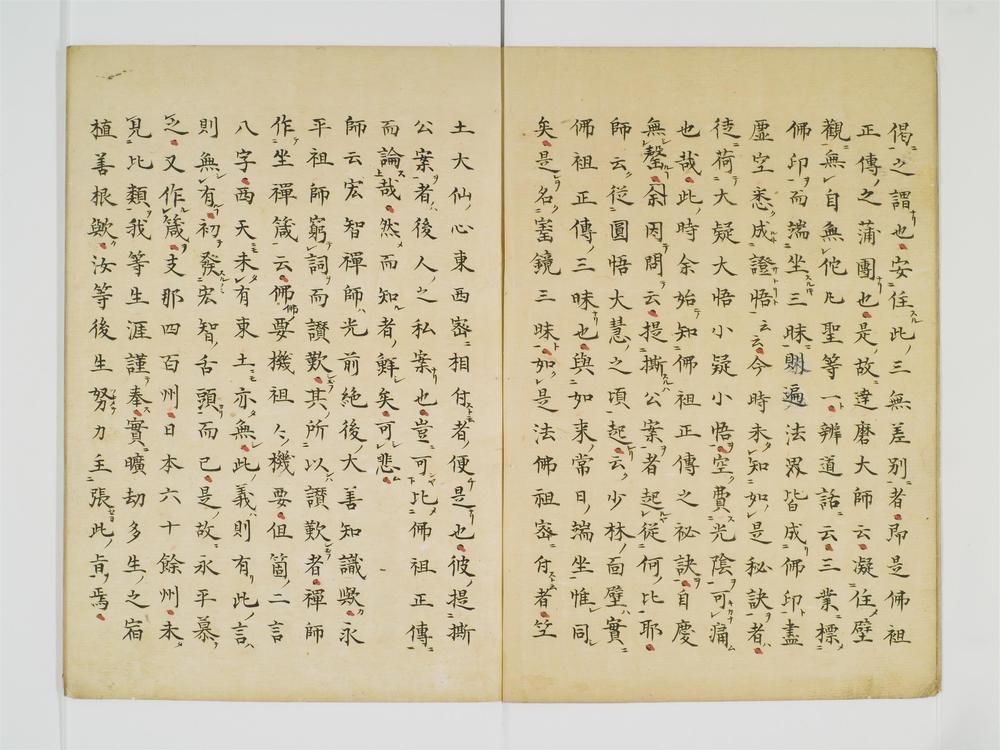 偈之謂也安住此三無差別者即是佛祖
正傳之蒲團也是故達磨大師云凝住壁
觀無自無他凡聖等一辨道話云三業標
佛印而端坐三昧則遍法界皆成佛印盡
虛空悉成證悟云云今時未知如是秘訣者
徒荷大疑大悟小疑小悟空費光陰可痛
也哉此時余始知佛祖正傳之秘訣自慶
無罄余因問云提撕公案者起從何比耶
師云從圓悟大慧之頃起云少林面壁實
佛祖正傳三昧也與如来常日端坐惟同
矣是名寶鏡三昧如是法佛祖密付者竺
土大仙心東西密相付者便是也彼提撕
公案者後人之私案也豈可比佛祖正傳
而論哉然而知者鮮矣可悲
師云宏智禪師光前絶後大善知識歟永
平祖師窮詞而讃歎其所以讃歎者禪師
作坐禪箴云佛佛要機祖々機要但箇二言
八字西天未有東土亦無此義則有此言
則無有初發宏智舌頭而已是故永平慕
之又作箴支那四百州日本六十餘州未
見比類我等生涯謹奉實曠劫多生之宿
植善根歟汝等後生努力主張此旨焉